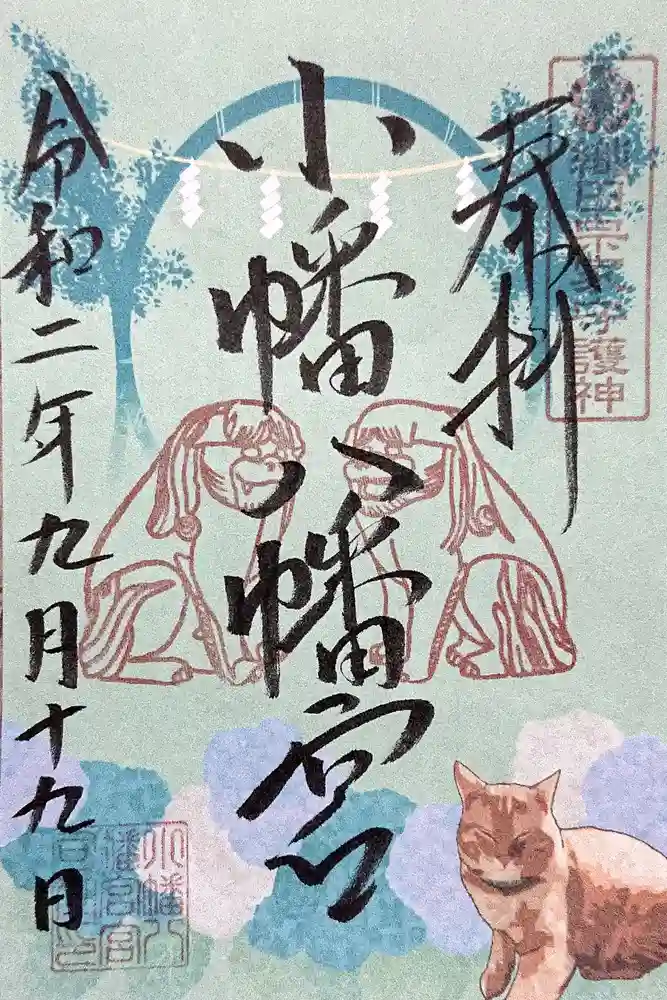 奉拝
守護神
小幡八幡宮
令和二年九月十九日
小幡八
幡宮宮